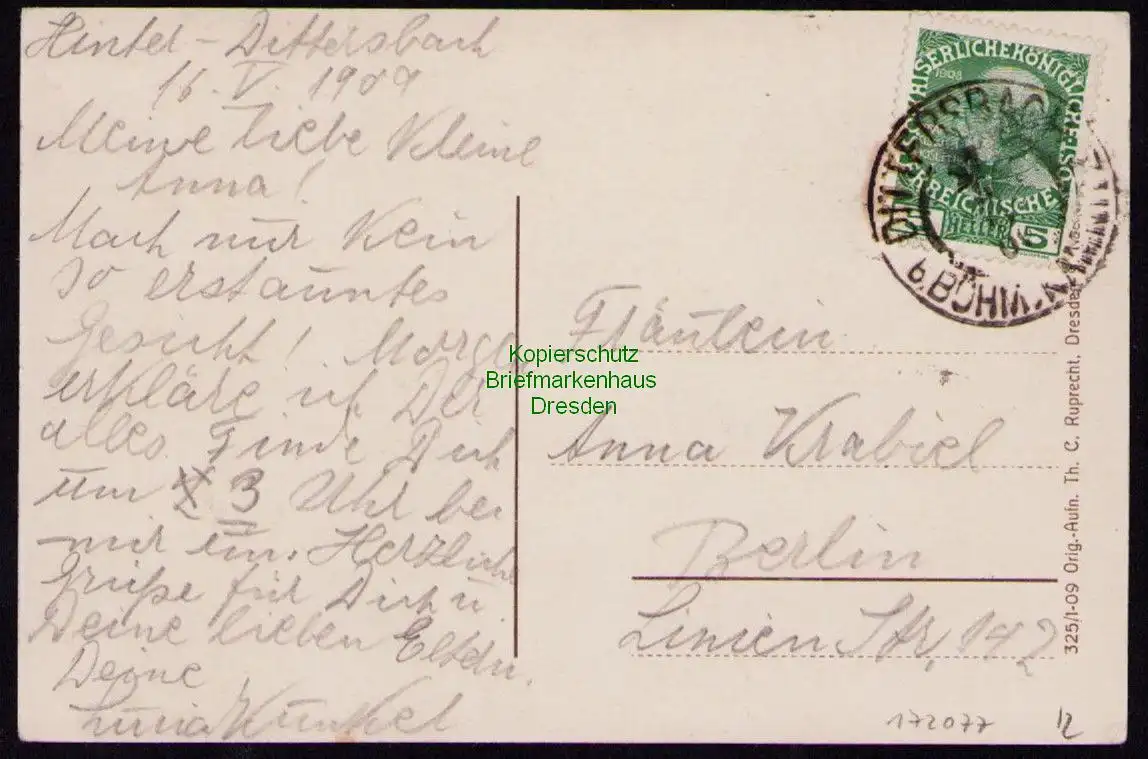 Hinter-Dittersbach
16. V. 1909
Meine liebe Kleine
Anna!
Mach nur kein
so erstauntes
Gesicht! Morgen
erkläre ich Dir
alles. Finde Dich
um 3 Uhr bei
mir ein. Herzliche
Grüße für Dich u.
Deine lieben Eltern.
Deine
Kunkel
KAISERLICHEKÖNIGLICHE
ÖSTERREICHISCHE POST
1908
HELLER
5
DITTERSBACH
b. BÖHM. KAMNITZ
Fräulein
Anna Krabiel
Berlin
Linien Str. 142
325/I-09 Orig.-Aufn. Th. C. Ruprecht, Dresden
Kopierschutz
Briefmarkenhaus
Dresden
172077
12